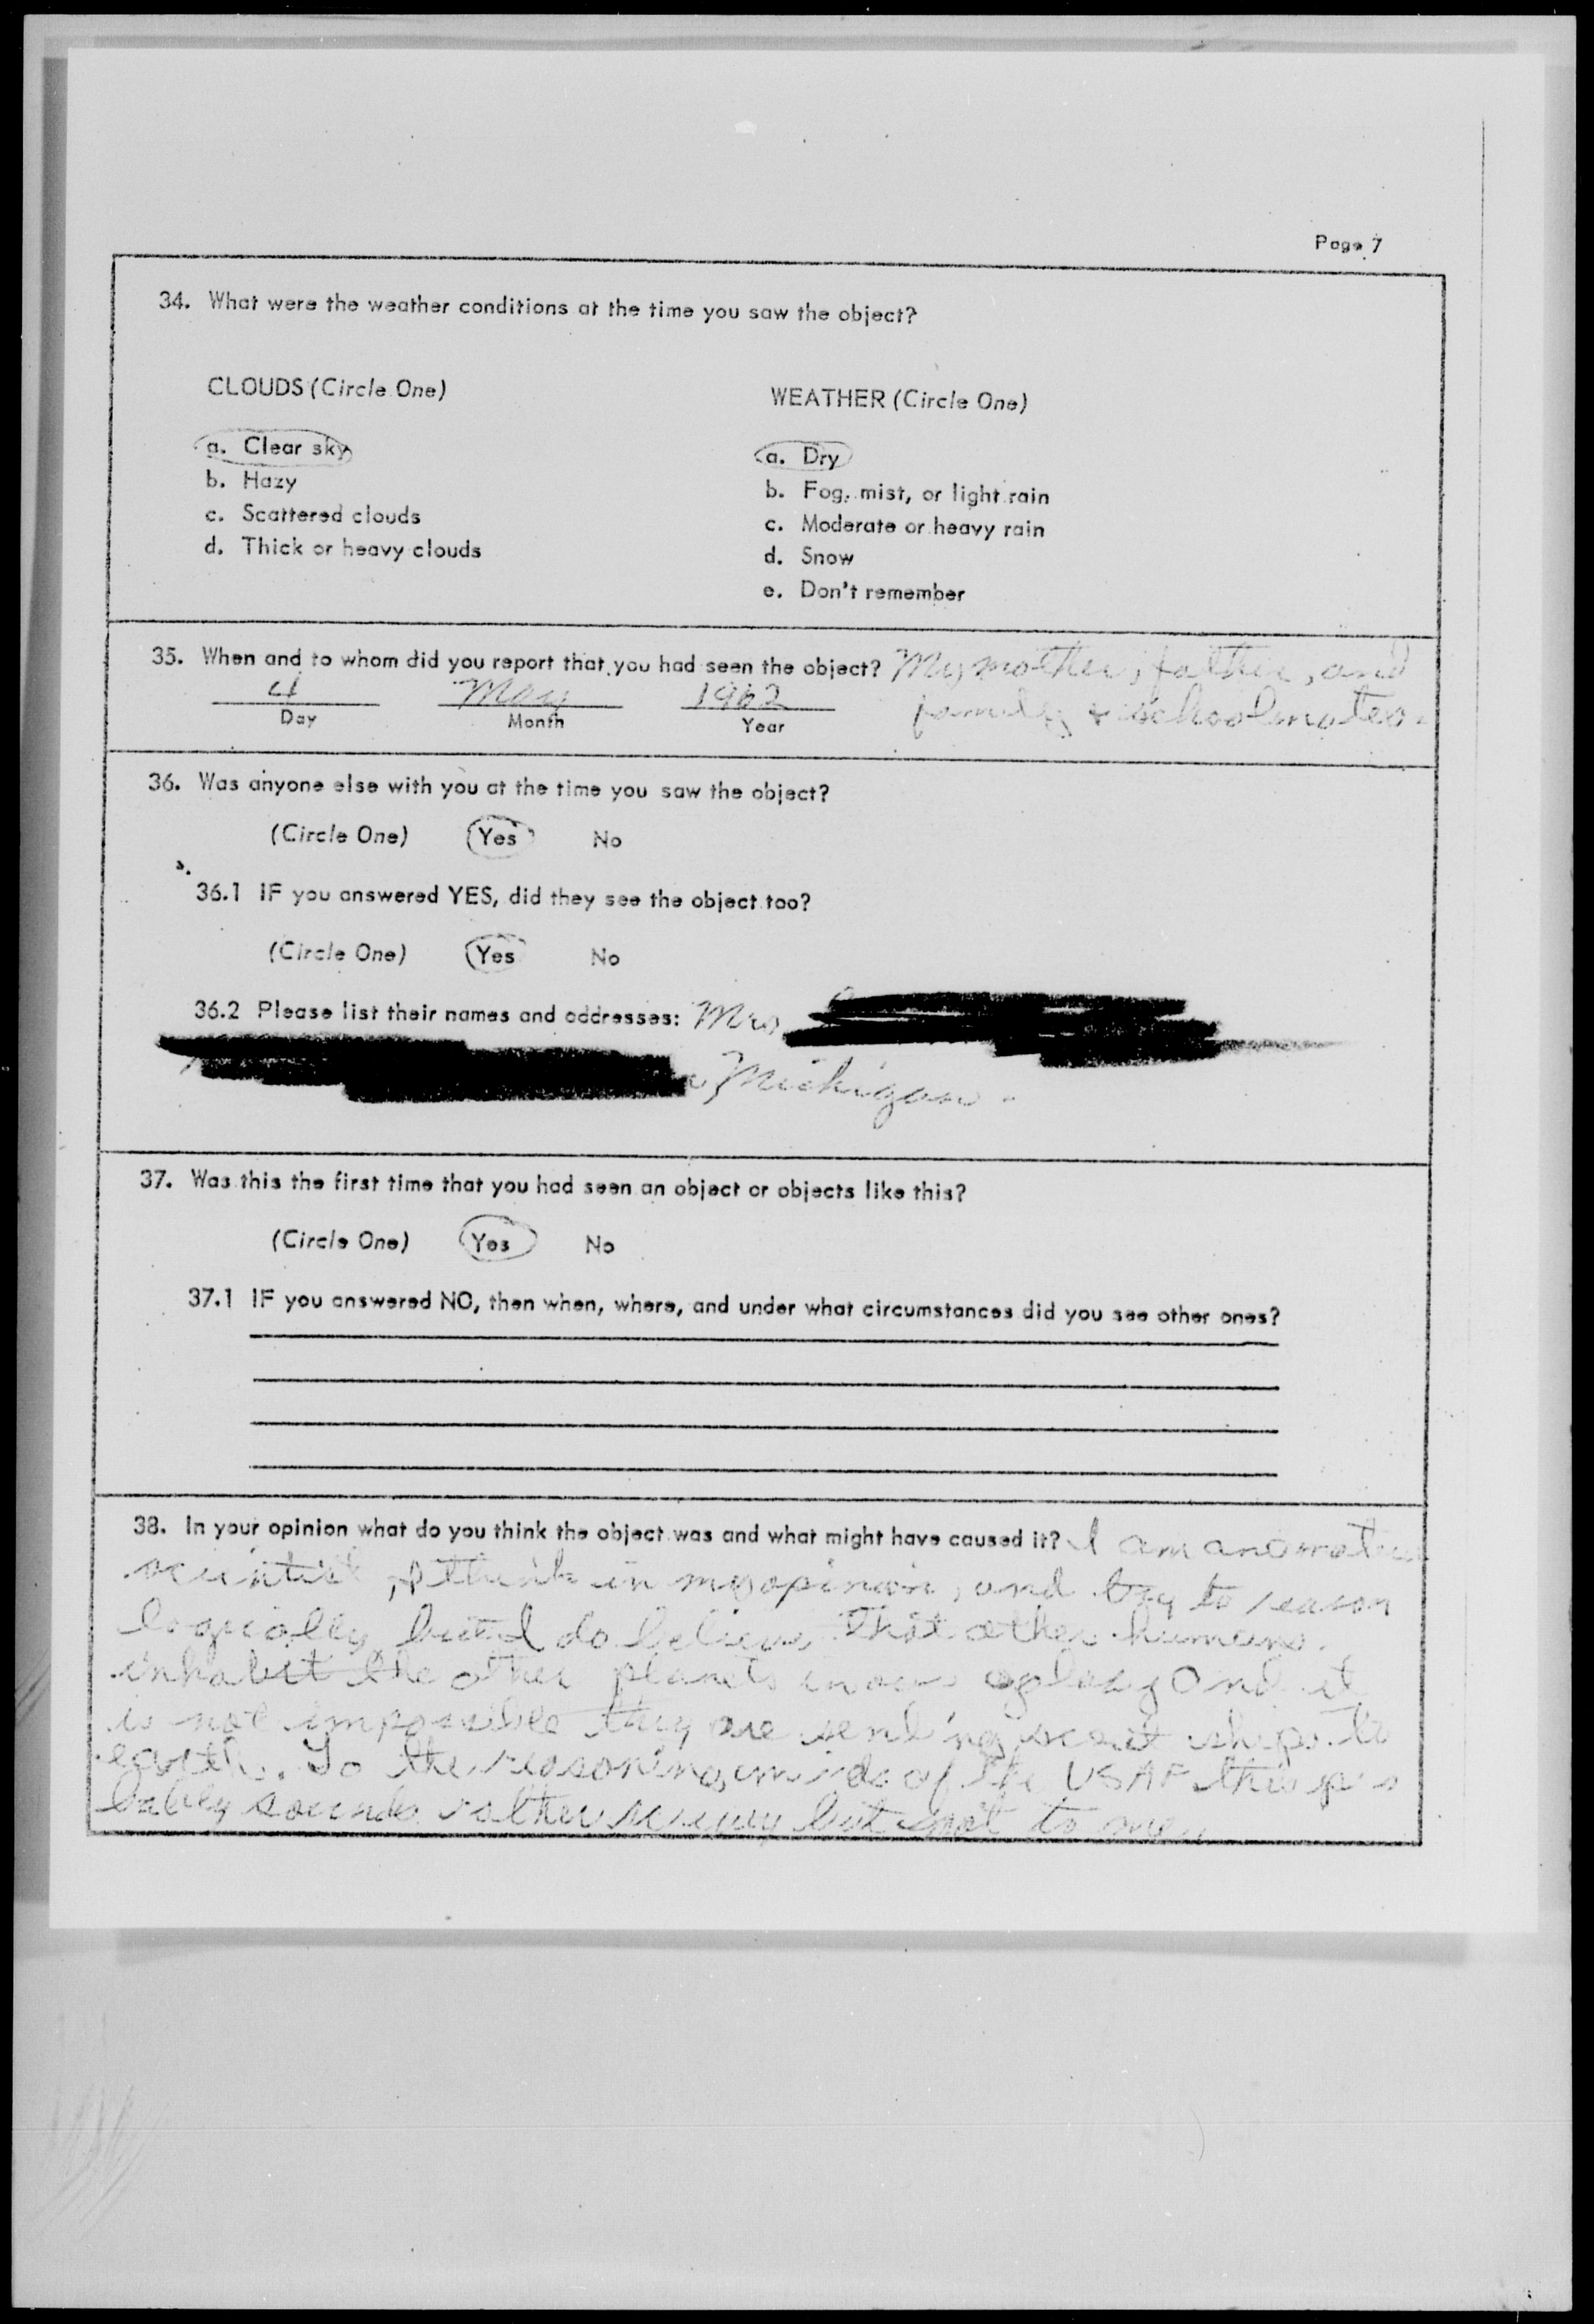 Page 7
34. What were the weather conditions at the time you saw the object?
CLOUDS (Circle One)
a. Clear sky
b. Hazy
c. Scattered clouds
d. Thick or heavy clouds
WEATHER (Circle One)
a. Dry
b. Fog, mist, or light rain
c. Moderate or heavy rain
d. Snow
e. Don't remember
35. When and to whom did you report that you had seen the object? My mother, father, and
family & schoolmates.
4 May 1962
Day Month Year
36. Was anyone else with you at the time you saw the object?
(Circle One) Yes No
36.1 IF you answered YES, did they see the object too?
(Circle One) Yes No
36.2 Please list their names and addresses: Mrs
Michigan.
37. Was this the first time that you had seen an object or objects like this?
(Circle One) Yes No
37.1 IF you answered NO, then when, where, and under what circumstances did you see other ones?
38. In your opinion what do you think the object was and what might have caused it? I am an amateur
scientist, I think in my opinion, and try to reason
logically but I do believe that other humans
inhabit the other planets in our galaxy and it
is not impossible they are sending scout ships to
earth. To the reasoning minds of the USAF this pro
bably sounds rather but not to me.